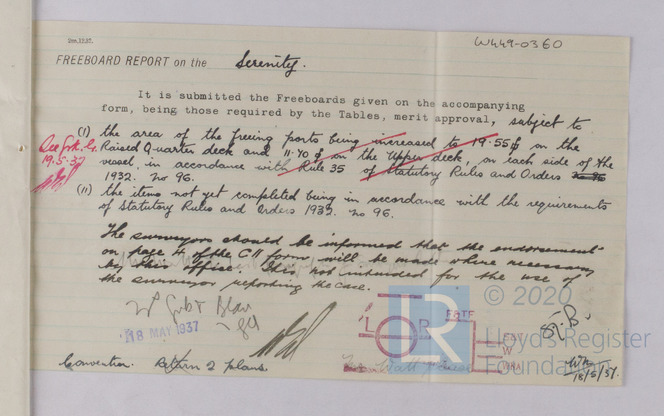 W449-0360
FREEBOARD REPORT on the Serenity.
It is submitted the Freeboards given on the accompanying
form, being those required by the Tables, merit approval, subject to
(I) the area of the freeing ports being increased to 19.55 on the
Raised Quarter deck and 11.40 on the Upper deck, on each side of the
vessel, in accordance with Rule 35 of Statutory Rules and Orders
1932. No 96.
19.5.37
(II) the items not yet completed being in accordance with the requirements
of Statutory Rules and Orders 1932. No 96.
The surveyors should be informed that the endorsement
on page 4 of the C11 form will be made where necessary
by this office. This not intended for the use of
the surveyor reporting the case.
18 MAY 1937
L R
F & T F
W
© 2020
Lloyd's Register
Foundation
18/5/37.
Convention. Return 2 plans